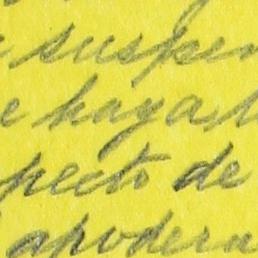 suspen
e haya l
pecto de
apodera